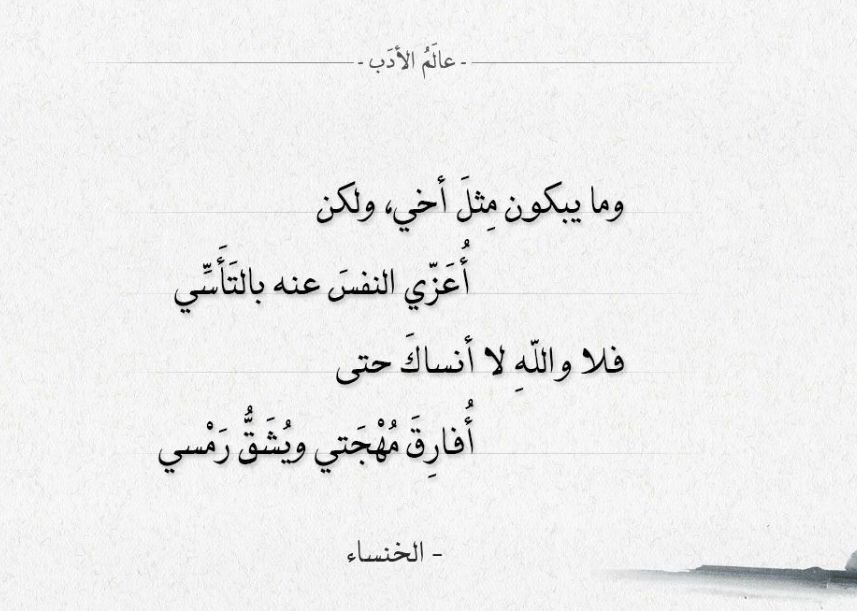 - عالَمُ الأدَب -
وما يبكون مِثلَ أخي، ولكن
أُعَزّي النفسَ عنه بالتَأَسِّي
فلا واللّهِ لا أنساكَ حتى
أُفارِقَ مُهْجَتي ويُشَقُّ رَمْسي
- الخنساء